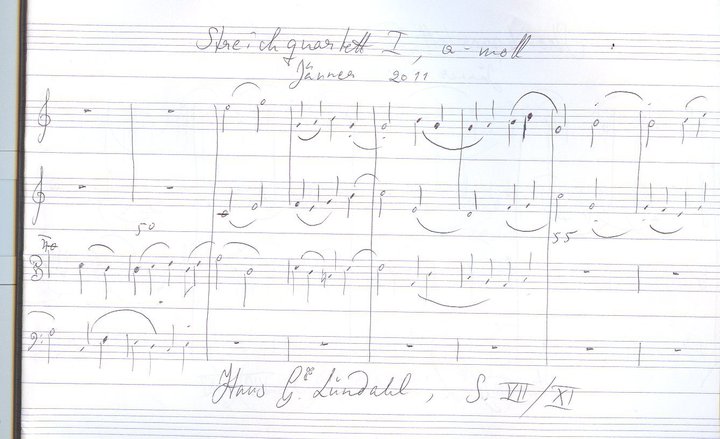 Streichquartett I, a-moll
Jänner 2011
50
55
Hans G. Lündahl, S. VII/XI